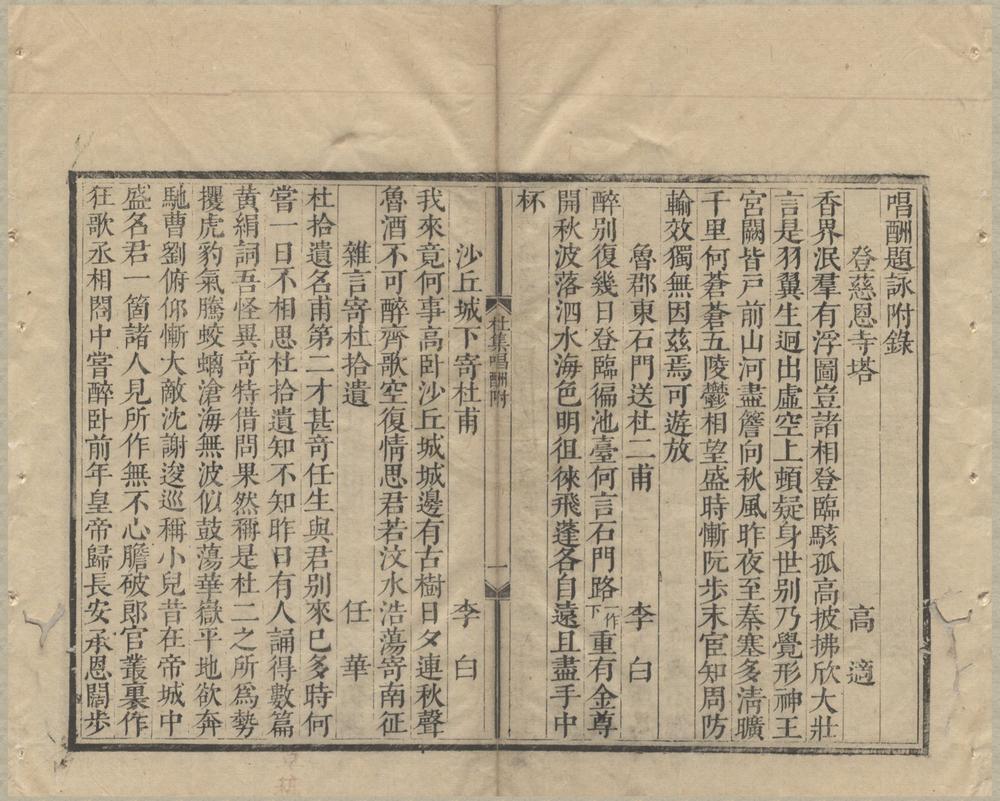 唱酬題詠附錄
登慈恩寺塔　高　適
香界泯羣有浮圖豈諸相登臨駭孤高披拂欣大壯
言是羽翼生迥出虛空上頓疑身世别乃覺形神王
宮闕皆戸前山河盡簷向秋風昨夜至秦塞多淸曠
千里何蒼蒼五陵鬱相望盛時慚阮步末宦知周防
輸效獨無因茲焉可遊放
魯郡東石門送杜二甫　李　白
醉别復幾日登臨徧池臺何言石門路一作下重有金尊
開秋波落泗水海色明徂徠飛蓬各自遠且盡手中
杯
杜集唱酬附　一
沙丘城下寄杜甫　李　白
我來竟何事高卧沙丘城城邊有古樹日夕連秋聲
魯酒不可醉齊歌空復情思君若汶水浩蕩寄南征
雜言寄杜拾遺　任　華
杜拾遺名甫第二才甚奇任生與君别來已多時何
嘗一日不相思杜拾遺知不知昨日有人誦得數篇
黄絹詞吾怪異奇特借問果然稱是杜二之所爲勢
攫虎豹氣騰蛟螭滄海無波似鼓蕩華嶽平地欲奔
馳曹劉俯仰慚大敵沈謝逡巡稱小兒昔在帝城中
盛名君一箇諸人見所作無不心膽破郎官叢裏作
狂歌丞相閣中嘗醉卧前年皇帝歸長安承恩闊步